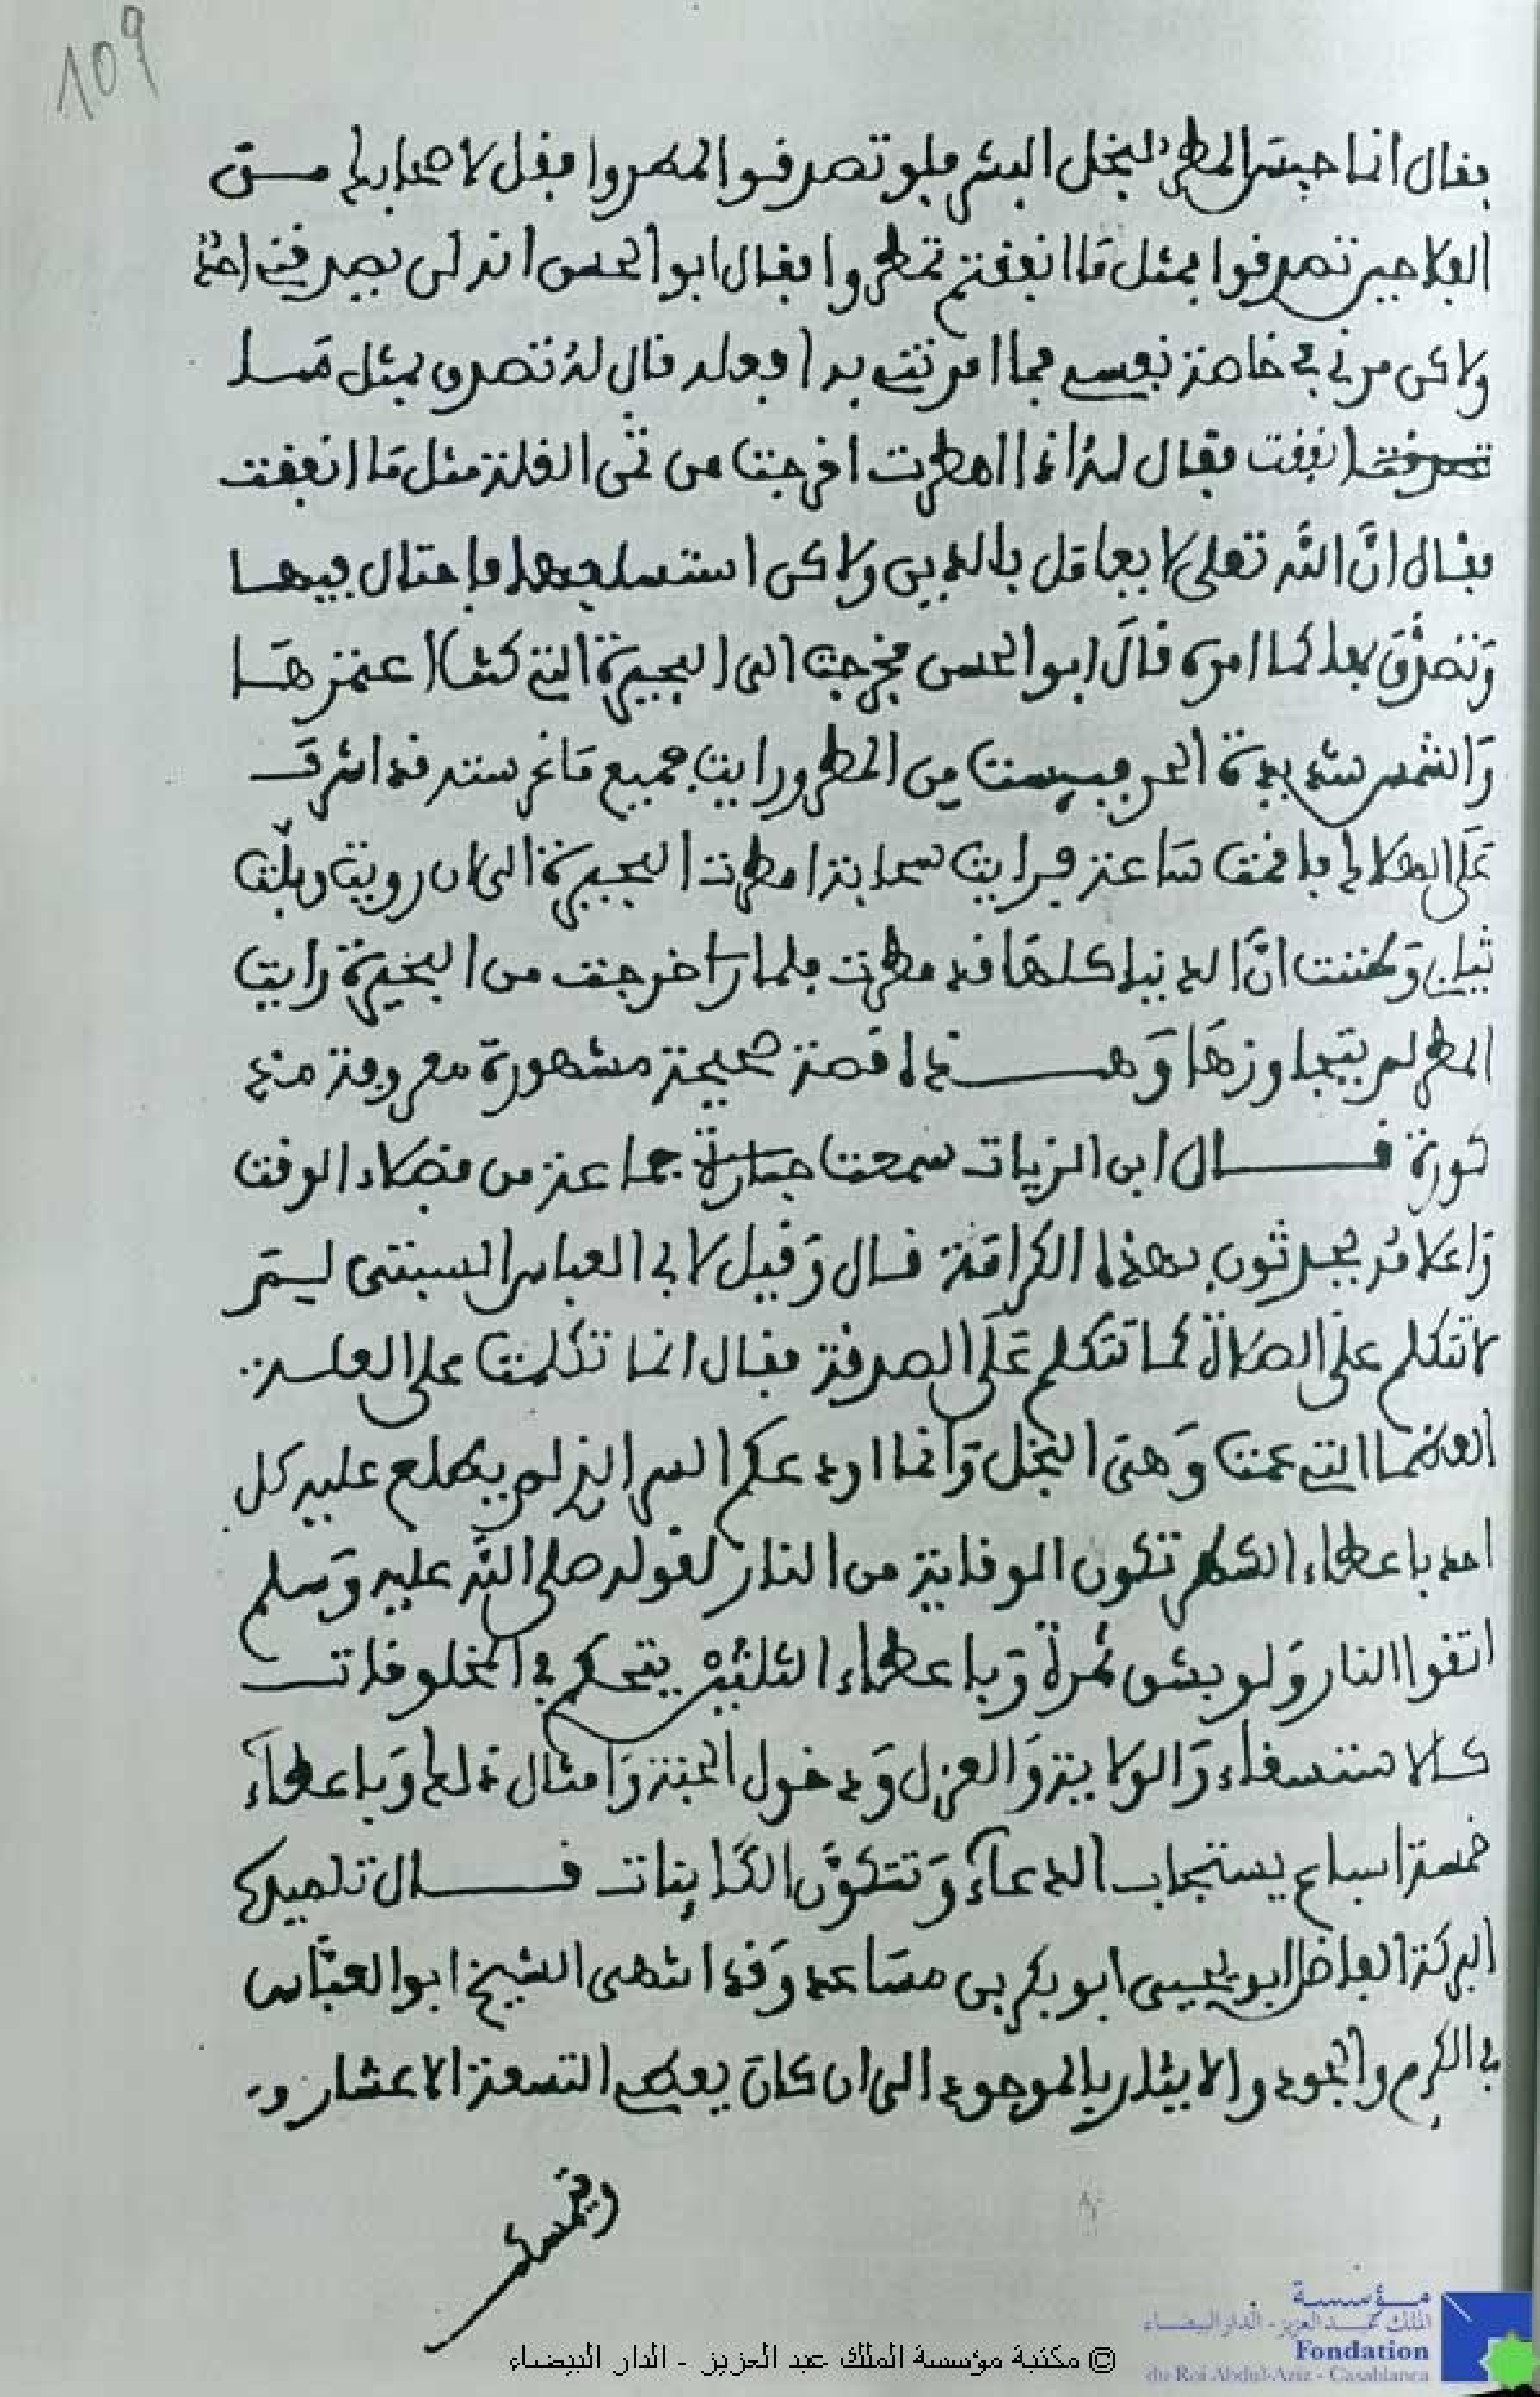 109
فقال انما حبس المطر لبخل البشر فلو تصدقوا لمطروا فقل لاصحابك من
الفلاحين تصدقوا بمثل ما انفقتم تمطروا فقال ابو الحسن انه لن يصدقني احد
ولاكن مرني في خاصة نفسي فما امرتني به افعله قال له تصدق بمثل ما
تصرفت انفقت فقال له اذا امطرت اخرجت من ثمن الغلة مثل ما انفقت
فقال ان الله تعلى لا يعامل بالدين ولاكن استسلفها واحتال فيها
وتصدق بها كما امره قال ابو الحسن فخرجت الى البحيرة التي كنت اعمرها
والشمس شديدة الحر فييست من المطر ورايت جميع ما غرسته قد اشرف
على الهلاك فاقمت ساعة فرايت سحابة امطرت البحيرة الى ان رويت وبلت
ثيابي وظننت ان الدنيا كلها قد مطرت فلما خرجت من البحيرة رايت
المطر لم يتجاوزها وهذا قصة صحيحة مشهورة معروفة منه
قال ابن الزيات سمعت جماعة من فضلاء الوقت
واعلامه يحدثون بهذا الكرامة قال وقيل لابي العباس السبتي لم
لا تتكلم على الصلاة كما تتكلم على الصدقة فقال انما تكلمت على العلة
العظما التي عمت وهي البخل وانما اودعكم السر الذ لم يطلع عليه كل
احد باعطاء الشطر تكون الوقاية من النار لقوله صلى الله عليه وسلم
اتقوا النار ولو بشق تمرة وباعطاء الثلثين يتحكم في المخلوقات
كالاستسقاء والولاية والعزل ودخول الجنة وامثال ذلك وباعطاء
خمسة اسباع يستجاب الدعاء وتتكون الكاينات قال تلميذه
البركة الفاضل ابو يحيى ابو بكر بن مساعد وقد انتهى الشيخ ابو العباس
في الكرم والجود والايثار بالموجود الى ان كان يعطي التسعة الاعشار و
ويمسك
© مكتبة مؤسسة الملك عبد العزيز - الدار البيضاء
مؤسسة
الملك عبد العزيز - الدار البيضاء
Fondation
du Roi Abdul-Aziz - Casablanca